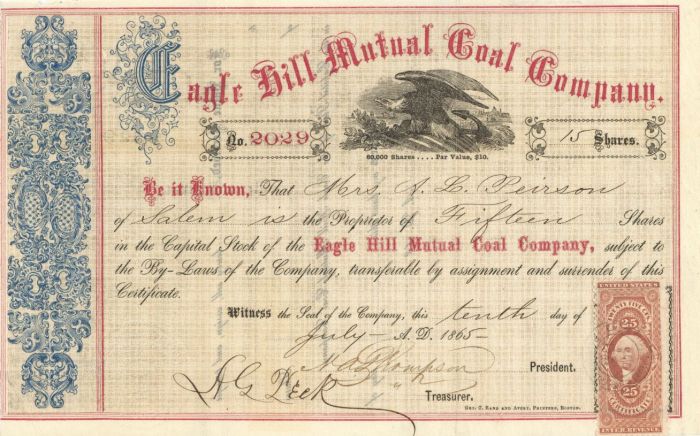 Eagle Hill Mutual Coal Company.
No. 2029
15 Shares.
60,000 Shares .... Par Value, $10.
Be it Known, That Mrs. A. L. Peirson
of Salem is the Proprietor of Fifteen Shares
in the Capital Stock of the Eagle Hill Mutual Coal Company, subject to
the By-Laws of the Company, transferable by assignment and surrender of this
Certificate.
Witness the Seal of the Company, this tenth day of
July - A. D. 1865 -
Thompson President.
A G Peck
Treasurer.
Geo. C. Rand and Avery, Printers, Boston.
UNITED STATES
TWENTY FIVE CENTS
25
25
CERTIFICATE
INTER. REVENUE